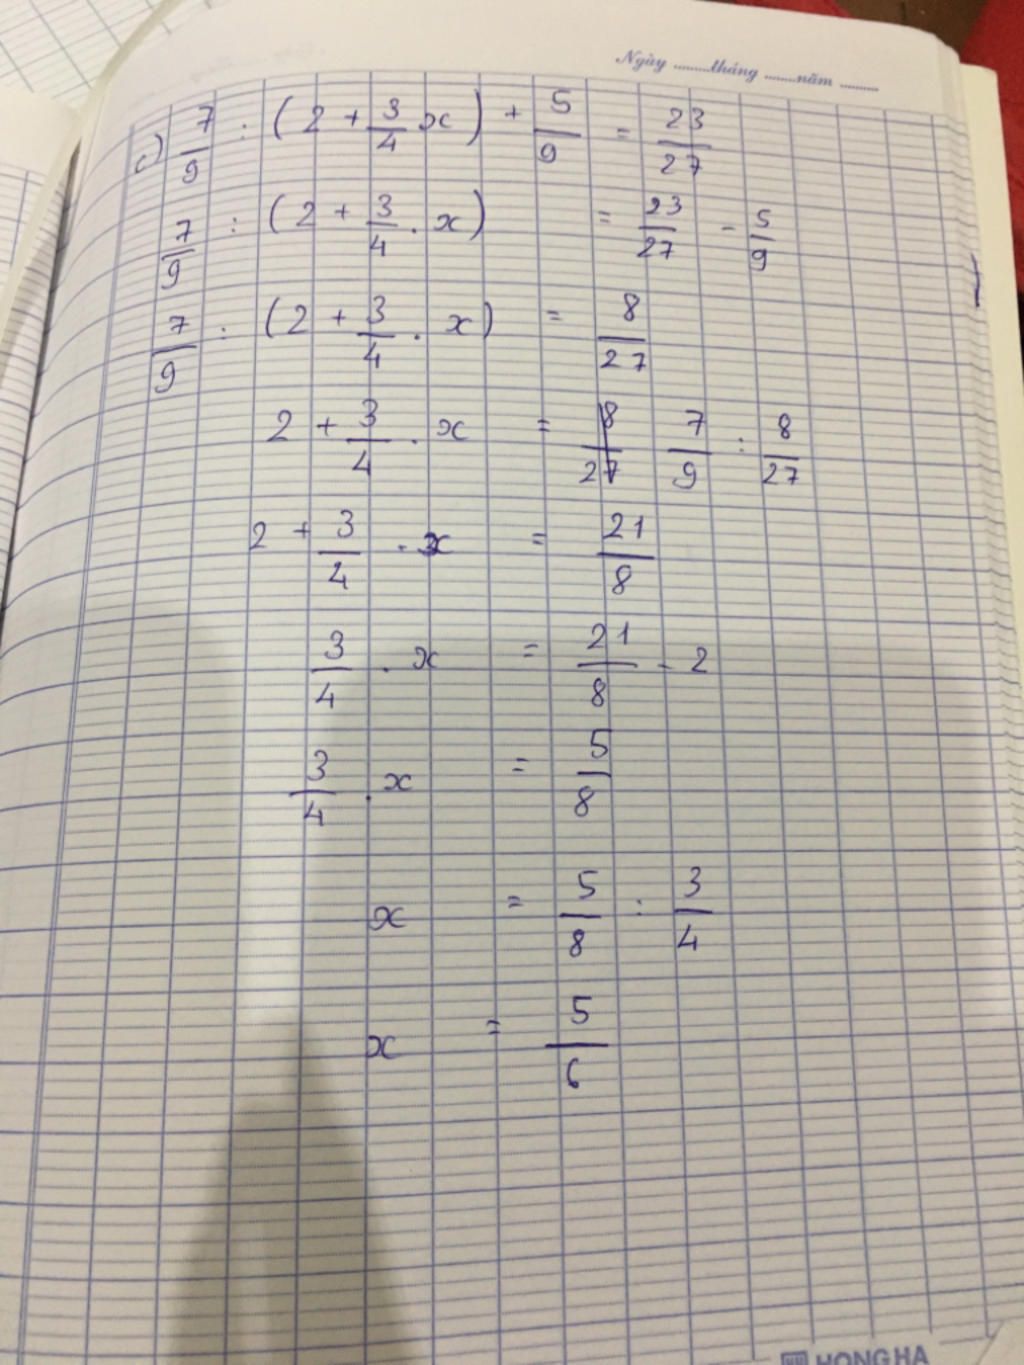 Ngày ........tháng .......năm ........
c) 7/9 : (2 + 3/4 x) + 5/9 = 23/27
7/9 : (2 + 3/4 . x) = 23/27 - 5/9
7/9 : (2 + 3/4 . x) = 8/27
2 + 3/4 . x = 8/27 7/9 : 8/27
2 + 3/4 . x = 21/8
3/4 . x = 21/8 - 2
3/4 . x = 5/8
x = 5/8 : 3/4
x = 5/6
HONG HA